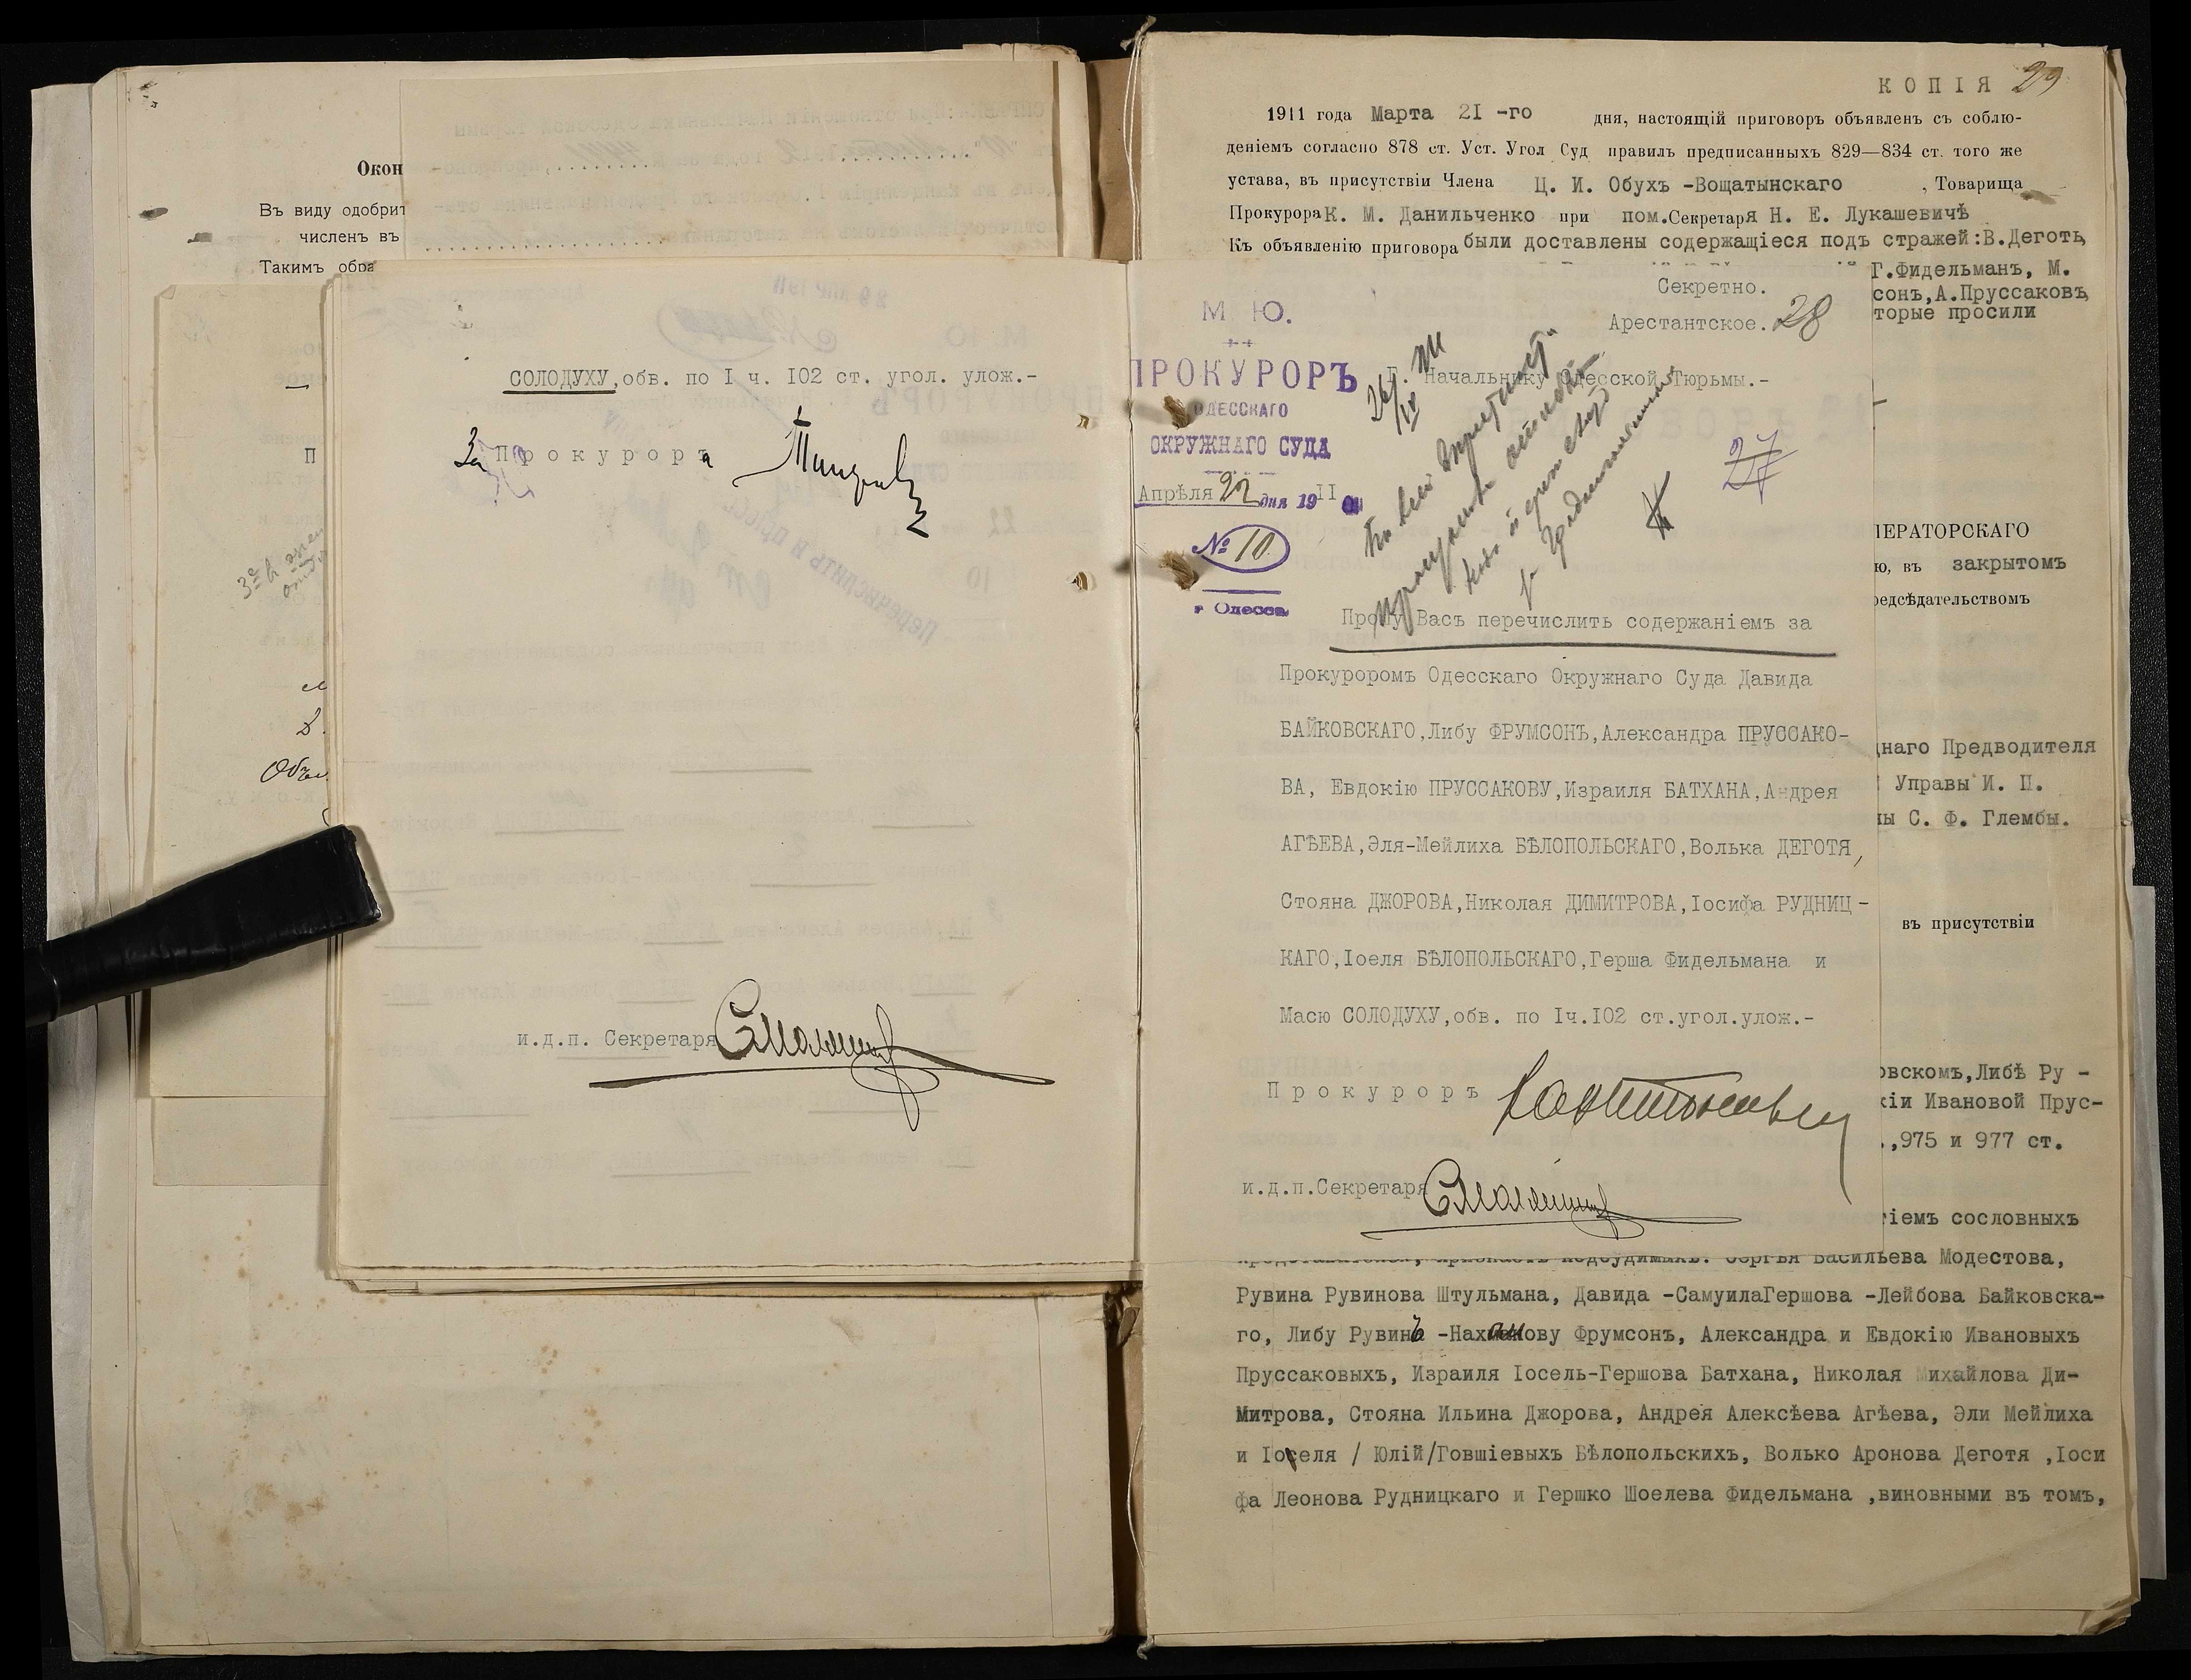 Окон
Въ виду одобрит
численъ въ
Таким обра
П
Объ
СОЛОДУХУ,обв. по I ч. I02 ст. угол. улож.-
За Прокурора
и.д.п. Секретаря
КОПІЯ 29
1911 года Марта 2I -го дня, настоящій приговоръ объявленъ съ соблю-
деніемъ согласно 878 ст. Уст. Угол Суд правилъ предписанныхъ 829—834 ст. того же
устава, въ присутствіи Члена Ц. И. Обухъ -Вощатынскаго , Товарища
Прокурора К. М. Данильченко при пом.Секретаря Н. Е. Лукашевичѣ
Къ объявленію приговора были доставлены содержащіеся подъ стражей:В.Деготь,
Г.Фидельманъ, М.
сонъ,А.Пруссаковъ,
торые просили
Секретно.
Арестантское. 28
М. Ю.
ПРОКУРОРЪ
ОДЕССКАГО
ОКРУЖНАГО СУДА
Апрѣля 22 дня 19 II
№ 10
г Одесса
Г. Начальнику Одесской Тюрьмы.-
26/IV
27
Прошу Васъ перечислить содержаніемъ за
Прокуроромъ Одесскаго Окружнаго Суда Давида
БАЙКОВСКАГО,Либу ФРУМСОНЪ,Александра ПРУССАКО-
ВА, Евдокію ПРУССАКОВУ,Израиля БАТХАНА,Андрея
АГѢЕВА,Эля-Мейлиха БѢЛОПОЛЬСКАГО,Волька ДЕГОТЯ,
Стояна ДЖОРОВА,Николая ДИМИТРОВА,Іосифа РУДНИЦ-
КАГО,Іоеля БѢЛОПОЛЬСКАГО,Герша Фидельмана и
Масю СОЛОДУХУ,обв. по Iч.I02 ст.угол.улож.-
Прокуроръ
и.д.п.Секретаря
ПЕРАТОРСКАГО
ю, въ закрытомъ
редсѣдательствомъ
наго Предводителя
Управы И. П.
ны С. Ф. Глембы.
въ присутствіи
овскомъ,Либѣ Ру -
кіи Ивановой Прус-
.,975 и 977 ст.
тіемъ сословныхъ
представителей, признать подсудимыхъ: Сергѣя Васильева Модестова,
Рувина Рувинова Штульмана, Давида -СамуилаГершова -Лейбова Байковска-
го, Либу Рувинъ -Нахманову Фрумсонъ, Александра и Евдокію Ивановыхъ
Пруссаковыхъ, Израиля Іосель-Гершова Батхана, Николая Михайлова Ди-
митрова, Стояна Ильина Джорова, Андрея Алексѣева Агѣева, Эли Мейлиха
и Іоселя / Юлій/Говшіевыхъ Бѣлопольскихъ, Волько Аронова Деготя ,Іоси
фа Леонова Рудницкаго и Гершко Шоелева Фидельмана ,виновными въ томъ,